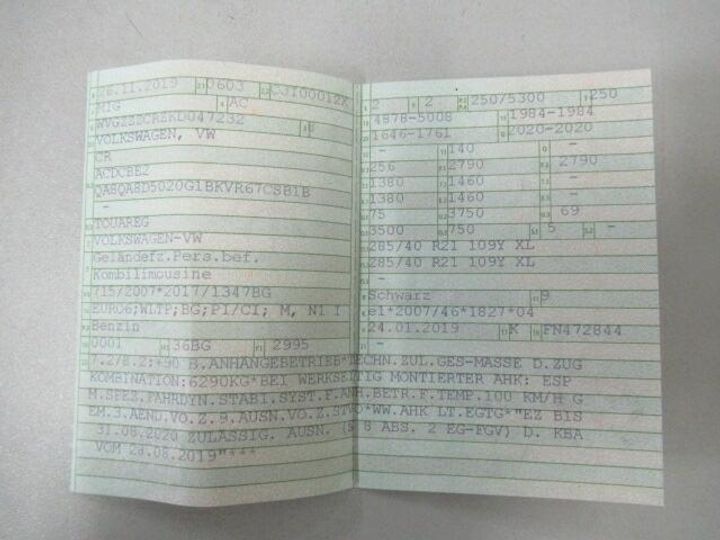 26.11.2019 0603 CJI00012X
M1G AC
WVGZZZCRZKD047232 5
VOLKSWAGEN, VW
CR
ACDCBE2
QA8QA8D5020G1BKVR67CSB1B
-
TOUAREG
VOLKSWAGEN-VW
Geländefz.Pers.bef.
Kombilimousine
715/2007*2017/1347BG
EURO6;WLTP;BG;PI/CI; M, N1 I
Benzin
0001 36BG 2995
2 2 250/5300 250
4878-5008 1984-1984
1646-1761 2020-2020
- 140 -
256 2790 2790
1380 1460 -
1380 1460 -
75 3750 69
3500 750 5 -
285/40 R21 109Y XL
285/40 R21 109Y XL
-
Schwarz 9
e1*2007/46*1827*04
24.01.2019 K FN472844
-
7.2/8.2:+90 B.ANHÄNGEBETRIEB*TECHN.ZUL.GES-MASSE D.ZUG
KOMBINATION:6290KG*BEI WERKSEITIG MONTIERTER AHK: ESP
M.SPEZ.FAHRDYN.STABI.SYST.F.ANH.BETR.F.TEMP.100 KM/H G
EM.3.AEND.VO.Z.9.AUSN.VO.Z.STVO*WW.AHK LT.EGTG*"EZ BIS
31.08.2020 ZULÄSSIG. AUSN. (§ 8 ABS. 2 EG-FGV) D. KBA
VOM 28.08.2019"***